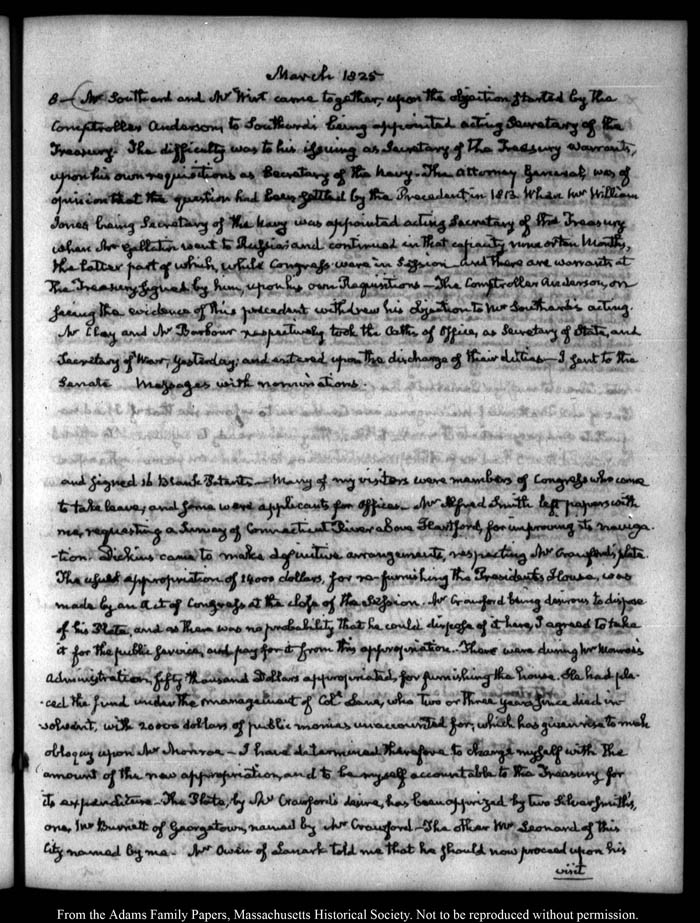 March 1825
8 — Mr Southard and Mr Wirt came together, upon the objection started by the
Comptroller Anderson, to Southard's being appointed acting Secretary of the
Treasury. The difficulty was to his issuing as Secretary of the Treasury warrants,
upon his own requisitions as Secretary of the Navy — The Attorney General, was of
opinion that the question had been settled by the Precedent in 1813. When Mr William
Jones being Secretary of the Navy was appointed acting Secretary of the Treasury
when Mr Gallatin went to Russia: and continued in that capacity nine or ten Months,
the latter part of which, while Congress were in Session — and there are warrants at
the Treasury signed by him, upon his own Requisitions — The Comptroller Anderson, on
seeing the evidence of this precedent withdrew his objection to Mr Southard's acting.
Mr Clay and Mr Barbour respectively took the Oaths of Office, as Secretary of State, and
Secretary of War, yesterday; and entered upon the discharge of their duties — I sent to the
Senate Messages with nominations
and signed 16 blank Patents — Many of my visitors were members of Congress who came
to take leave; and some were applicants for Offices. Mr Alfred Smith left papers with
me, requesting a Survey of Connecticut River above Hartford, for improving its naviga-
-tion. Dickins came to make definitive arrangements, respecting Mr Crawford's plate.
The usual appropriation of 14000 dollars, for re-furnishing the President's House, was
made by an Act of Congress at the close of the Session. Mr Crawford being desirous to dispose
of his Plate, and as there was no probability that he could dispose of it here, I agreed to take
it for the public service, and pay for it from this appropriation. There were during Mr Monroe's
Administration, fifty thousand Dollars appropriated, for furnishing the house. He had pla-
-ced the fund under the management of Coll. Lane, who two or three years since died in-
-solvent, with 20000 dollars of public monies unaccounted for; which has given rise to much
obloquy upon Mr Monroe — I have determined therefore to charge myself with the
amount of the new appropriation, and to be myself accountable to the Treasury for
its expenditure. The Plate, by Mr Crawford's desire, has been apprized by two Silver Smith's,
one, Mr Burnett of Georgetown, named by Mr Crawford — The other Mr Leonard of this
City named by me. Mr Owen of Lanark told me that he should now proceed upon his
visit
From the Adams Family Papers, Massachusetts Historical Society. Not to be reproduced without permission.